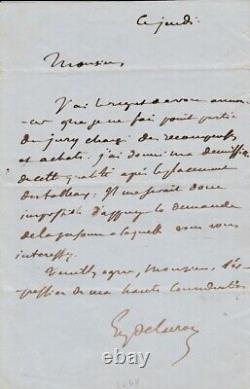 ce jeudi.
Monsieur
J'ai le regret de vous annon-
-cer que je ne fais point partie
du jury chargé des récompenses
et achats : j'ai donné ma démission
de cette qualité après le placement
des tableaux. Il me serait donc
impossible d'appuyer la demande
de la personne à laquelle vous vous
intéressez.
Veuillez agréer, Monsieur, l'ex-
pression de ma haute considération
Eug Delacroix